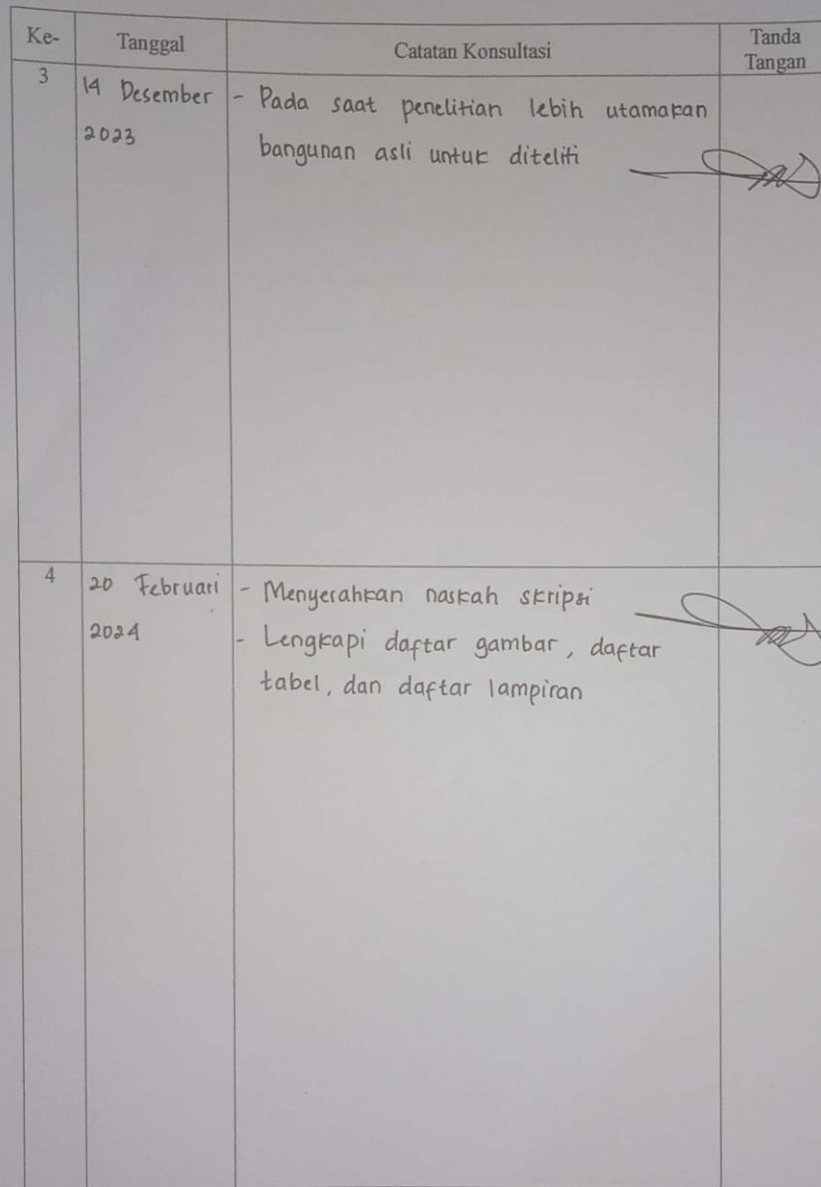 Ke- Tanggal Catatan Konsultasi Tanda
Tangan
3 14 Desember - Pada saat penelitian lebih utamakan
2023 bangunan asli untuk diteliti
4 20 Februari - Menyerahkan naskah skripsi
2024 - Lengkapi daftar gambar, daftar
tabel, dan daftar lampiran